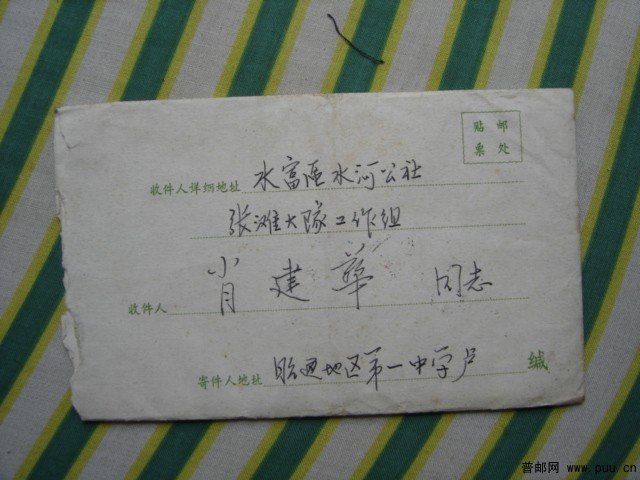 贴邮
票处
收件人详细地址 水富区水河公社
张滩大队工作组
收件人 肖建华 同志
寄件人地址 昭通地区第一中学卢 缄
普邮网 www.puu.cn